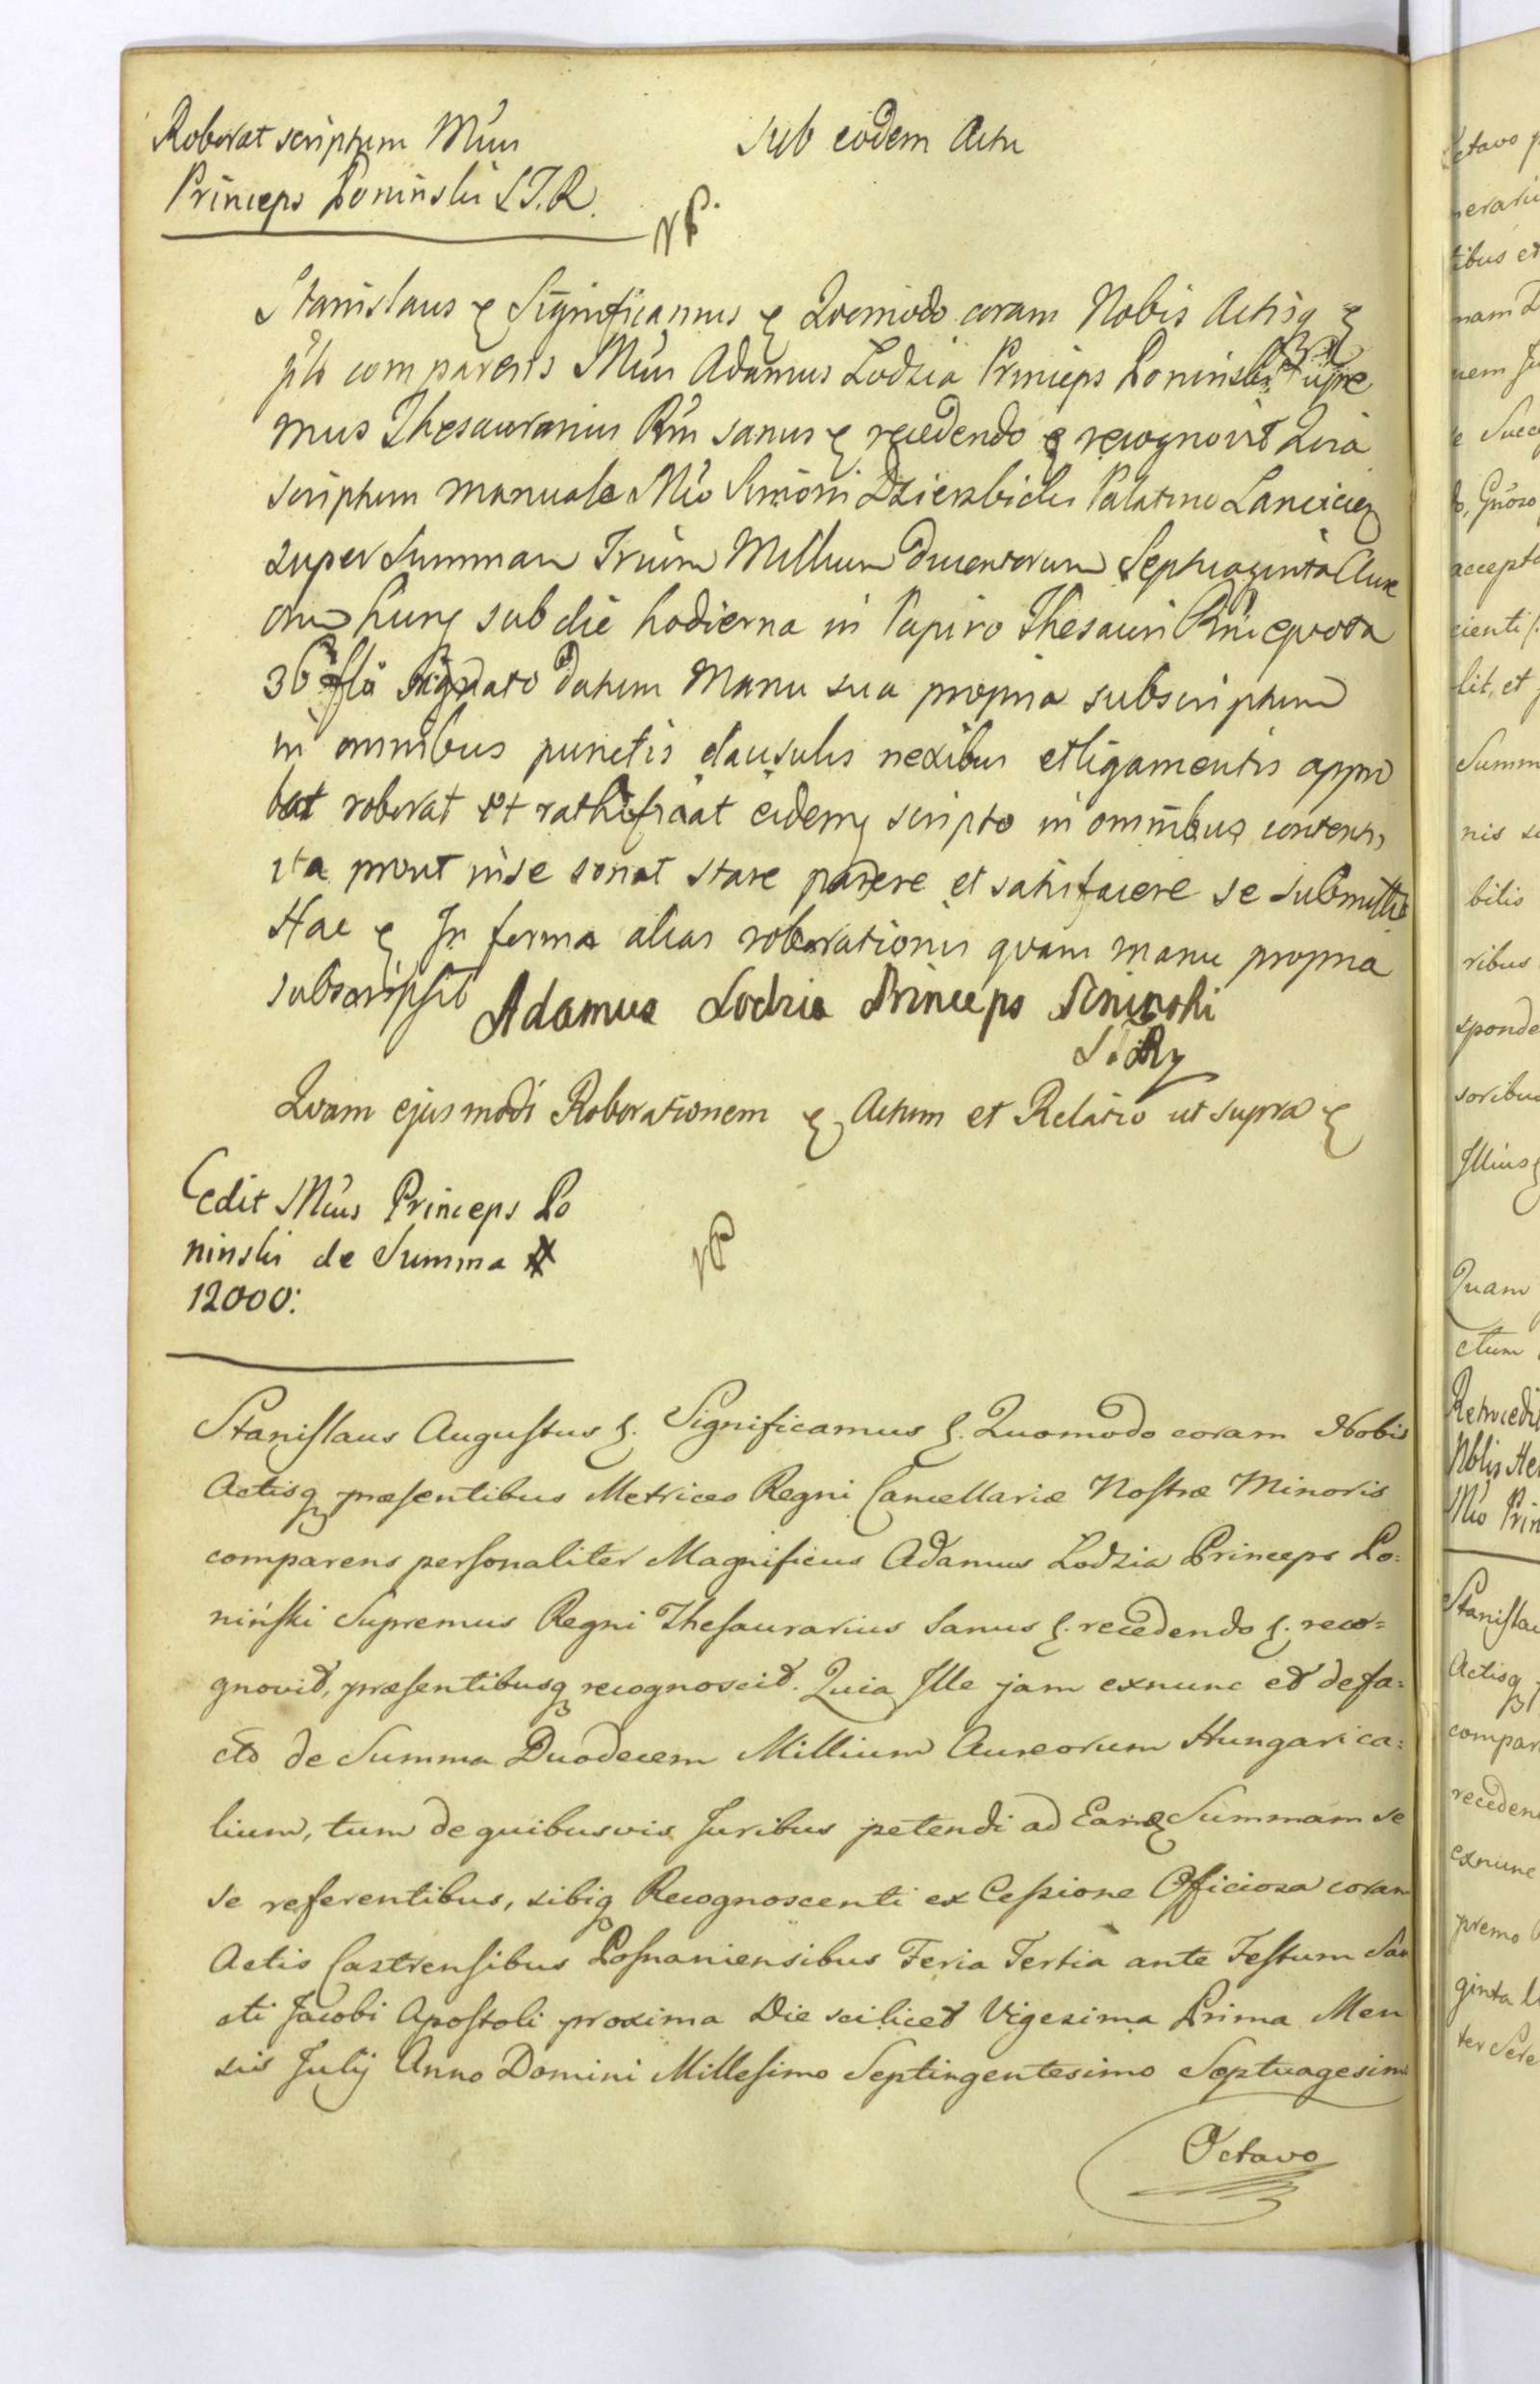 Roborat scriptum Mũus
Princeps Poninski S.T.R.
Sub eodem Actu
NP.
Stanislaus & Significamus & Qvomodo coram Nobis Actisq &
pñs comparens Mũus Adamus Lodzia Princeps Poninski Supre
mus Thesaurarius Rñi sanus & recedendo & recognovit Qvia
scriptum manuale Mũo Simoni Dzierzbicki Palatino Lanciciez
super Summam Trium Millium ducentorum Septuaginta Aure
orum hung sub die hodierna in Papiro Thesauri Rñi qvota
36 flõ signato datum Manu sua propria subscriptum
in omnibus punctis clausulis nexibus et ligamentis appro
bat roborat et rathificat eidemq scripto in omnibus contentis
ita prout in se sonat stare parere et satisfacere se submittit
Hac & In forma alias roborationis qvam manu propria
subscripsit Adamus Lodzia Princeps Poninski
Qvam ejusmodi Roborationem & Actum et Relatio ut supra &
Cedit Mũus Princeps Po
ninski de Summa #
12000:
NP
Stanislaus Augustus &. Significamus &. Quomodo coram Nobis
Actisq præsentibus Metrices Regni Cancellariæ Nostræ Minoris
comparens personaliter Magnificus Adamus Lodzia Princeps Po:
niński Supremus Regni Thesaurarius Sanus &. recedendo &. reco=
gnovit, præsentibusq recognoscit. Quia Ille jam exnunc et defa:
cto de Summa Duodecem Millium Aureorum Hungarica:
lium, tum de quibusvis Juribus petendi ad Eamq Summam se
se referentibus, sibiq Recognoscenti ex Cessione Officiosa coram
Actis Castrensibus Posnaniensibus Feria Tertia ante Festum San
cti Jacobi Apostoli proxima Die scilicet Vigesima Prima Men
sis Julij Anno Domini Millesimo Septingentesimo Septuagesimo
Octavo